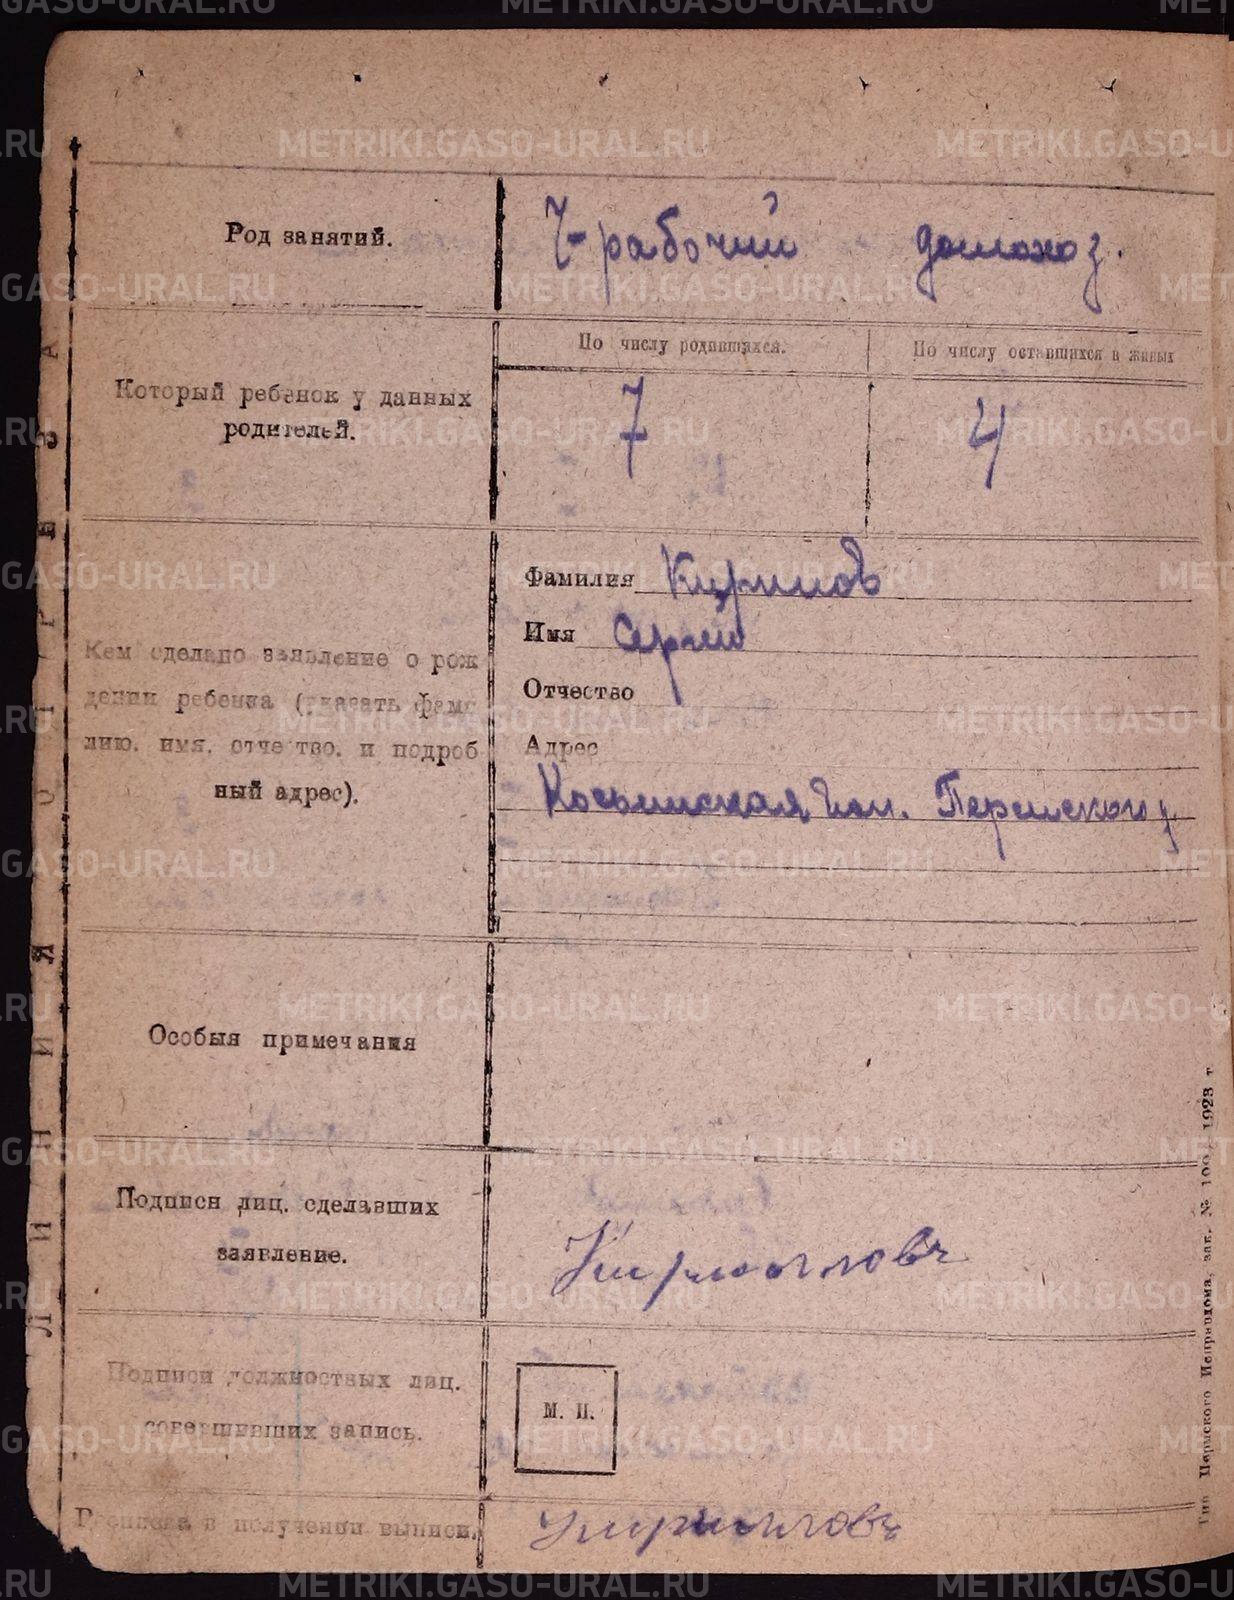 Род занятий.
Ч-рабочий домохоз.
По числу родившихся.
По числу оставшихся в живых
Который ребенок у данных
родителей.
7
4
Кем сделано заявление о рож
дении ребенка (указать фами
лию, имя, отчество, и подроб
ный адрес).
Фамилия
Имя Сергей
Отчество
Адрес
Косьинская Пермского
Особыя примечания
Подписи лиц, сделавших
заявление.
Подписи должностных лиц.
совершивших запись.
М. П.
Росписка в получении выписи.
ЛИНИЯ ОТРЕЗА
Тип Пермского Исправдома, зак. № 100 1923 г
METRIKI.GASO-URAL.RU